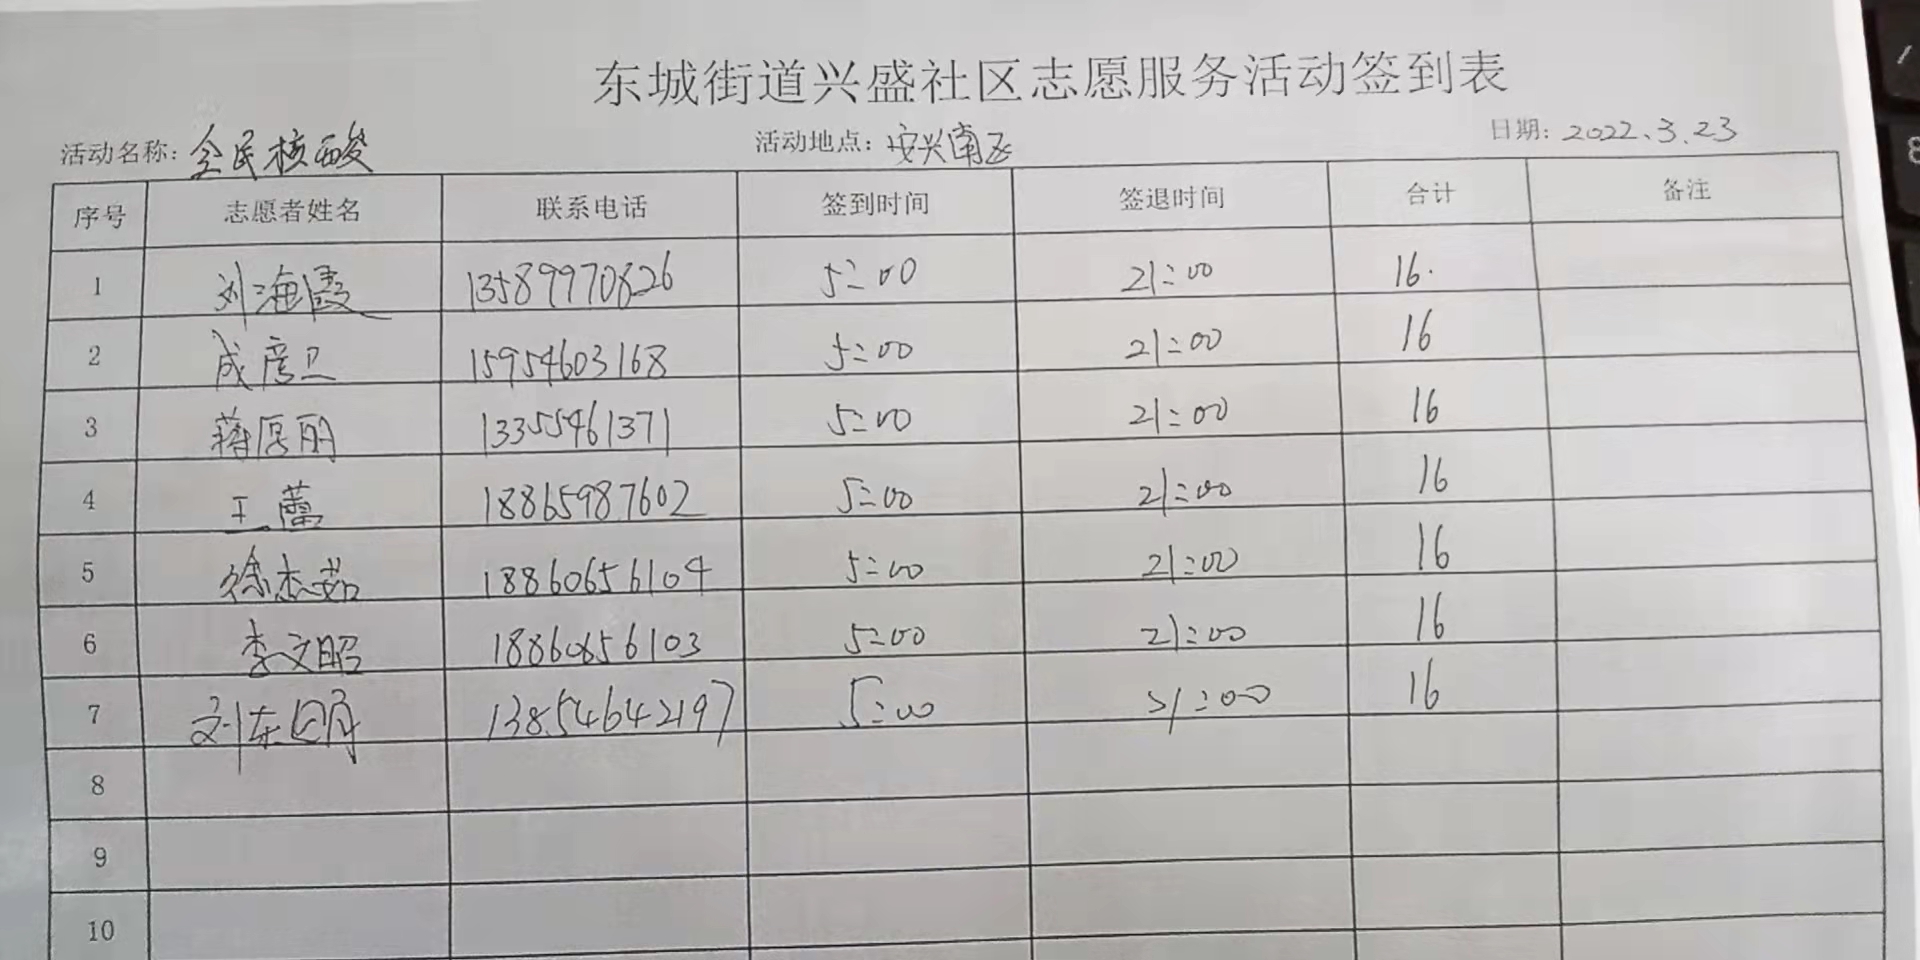 东城街道兴盛社区志愿服务活动签到表
活动名称: 全民核酸 活动地点: 安兴南区 日期: 2022.3.23
序号 志愿者姓名 联系电话 签到时间 签退时间 合计 备注
1 刘海霞 13589970826 5:00 21:00 16.
2 成彦卫 15954603168 5:00 21:00 16
3 蒋厚丽 13355461371 5:00 21:00 16
4 王蕾 18865987602 5:00 21:00 16
5 徐杰茹 18860656104 5:00 21:00 16
6 李文昭 18860656103 5:00 21:00 16
7 刘东 13854642197 5:00 21:00 16
8
9
10